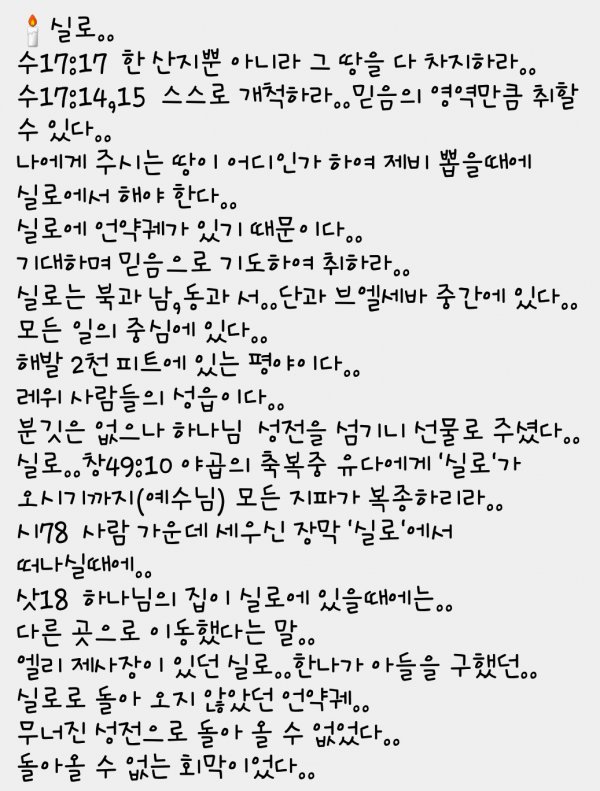 🕯 실로。。
수17:17 한 산지뿐 아니라 그 땅을 다 차지하라。。
수17:14,15 스스로 개척하라。。믿음의 영역만큼 취할
수 있다。。
나에게 주시는 땅이 어디인가 하여 제비 뽑을때에
실로에서 해야 한다。。
실로에 언약궤가 있기 때문이다。。
기대하며 믿음으로 기도하여 취하라。。
실로는 북과 남,동과 서。。단과 브엘세바 중간에 있다。。
모든 일의 중심에 있다。。
해발 2천 피트에 있는 평야이다。。
레위 사람들의 성읍이다。。
분깃은 없으나 하나님 성전을 섬기니 선물로 주셨다。。
실로。。창49:10 야곱의 축복중 유다에게 '실로'가
오시기까지(예수님) 모든 지파가 복종하리라。。
시78 사람 가운데 세우신 장막 '실로'에서
떠나실때에。。
삿18 하나님의 집이 실로에 있을때에는。。
다른 곳으로 이동했다는 말。。
엘리 제사장이 있던 실로。。한나가 아들을 구했던。。
실로로 돌아 오지 않았던 언약궤。。
무너진 성전으로 돌아 올 수 없었다。。
돌아올 수 없는 회막이었다。。